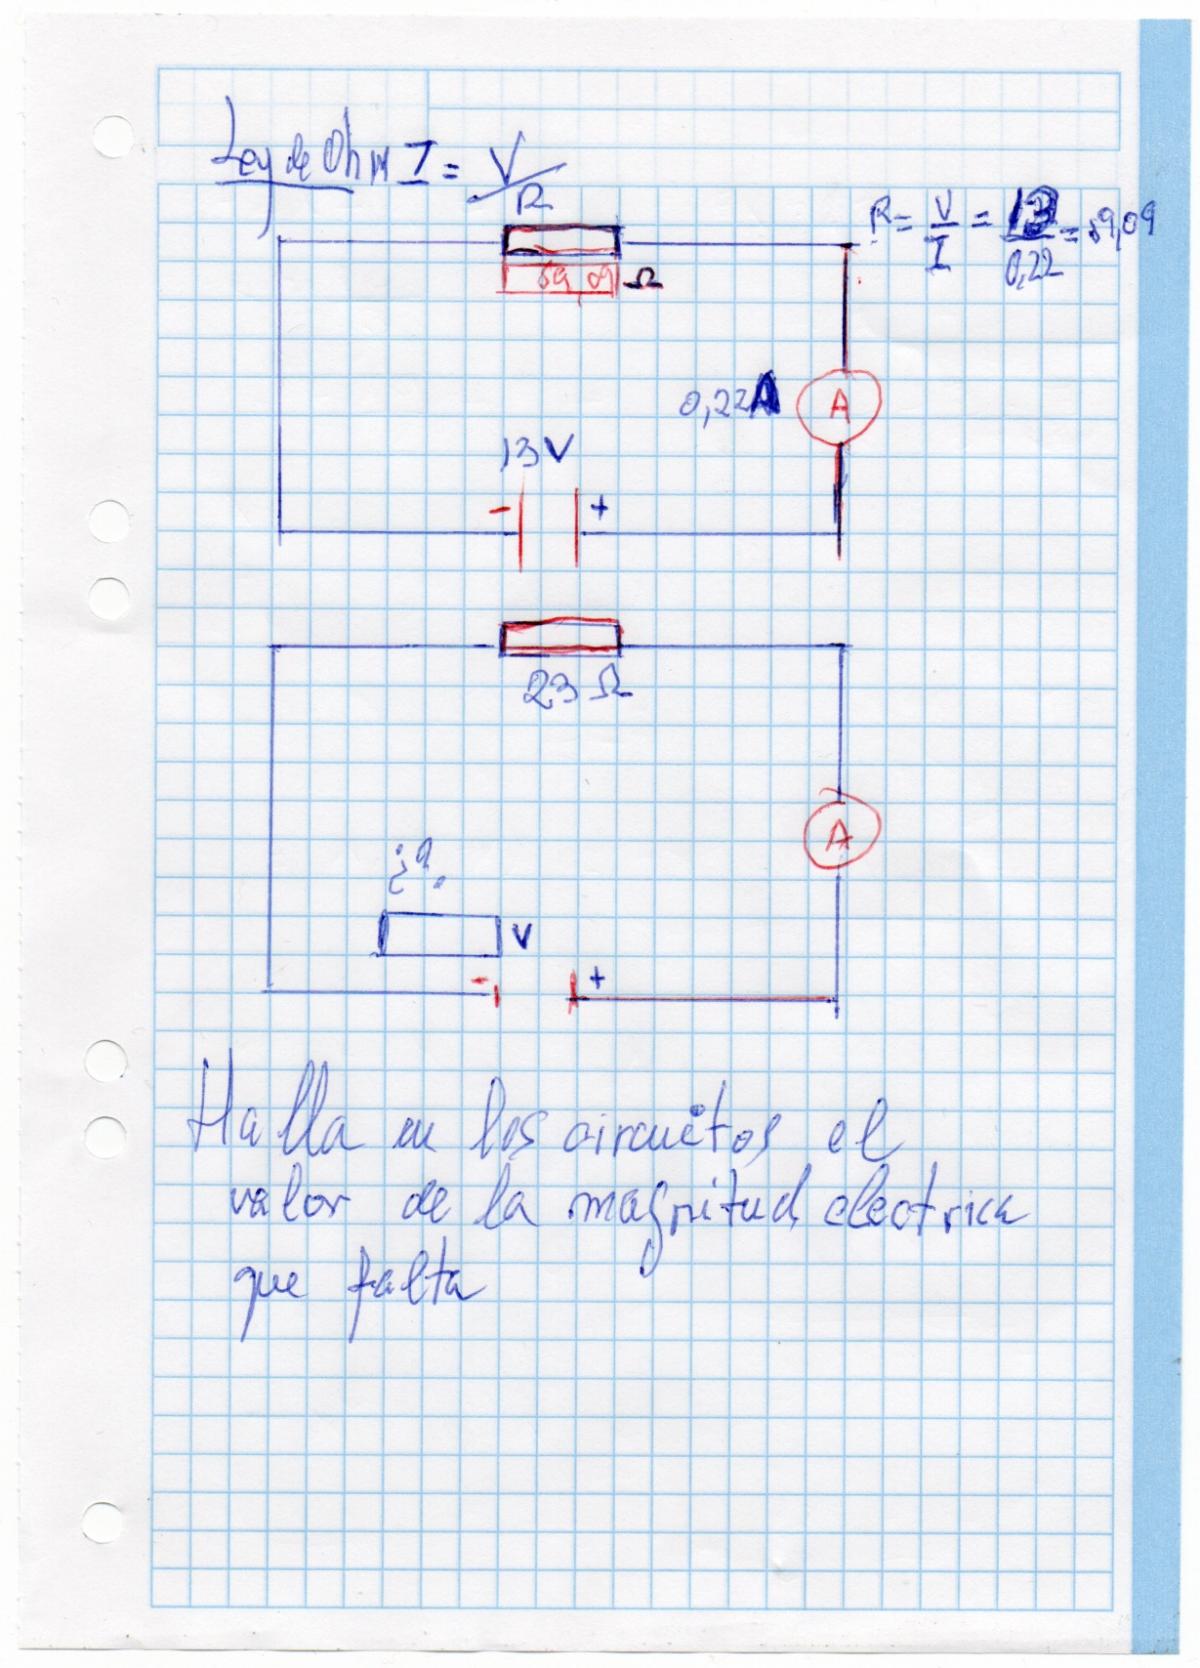 Ley de Ohm I = V/R
R = V/I = 13/0,22 = 59,09
59,09 Ω
0,22A
A
13V
- +
23 Ω
A
¿?
V
- +
Halla en los circuitos el
valor de la magnitud electrica
que falta